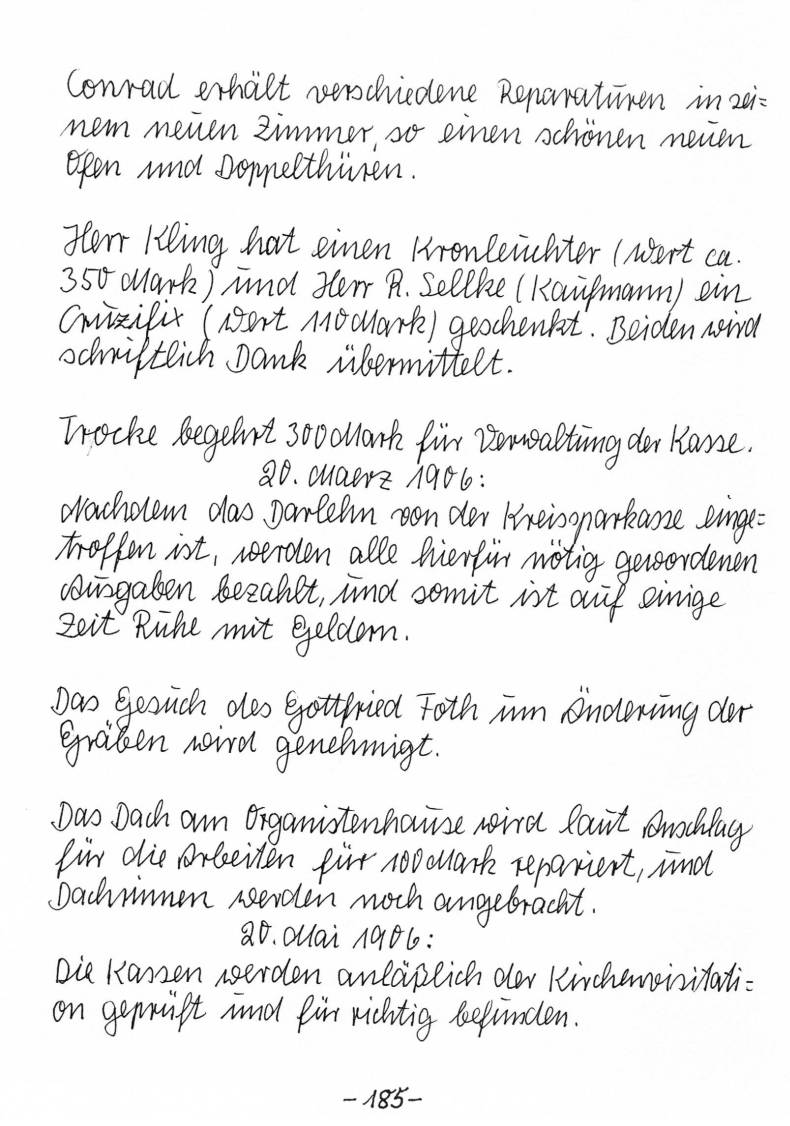 Conrad erhält verschiedene Reparaturen in sei=
nem neuen Zimmer, so einen schönen neuen
Ofen und Doppelthüren.
Herr Kling hat einen Kronleuchter (Wert ca.
350 Mark) und Herr R. Sellke (Kaufmann) ein
Cruzifix (Wert 110 Mark) geschenkt. Beiden wird
schriftlich Dank übermittelt.
Trocke begehrt 300 Mark für Verwaltung der Kasse.
20. Maerz 1906:
Nachdem das Darlehn von der Kreissparkasse einge=
troffen ist, werden alle hierfür nötig gewordenen
Ausgaben bezahlt, und somit ist auf einige
Zeit Ruhe mit Geldern.
Das Gesuch des Gottfried Foth um Änderung der
Gräben wird genehmigt.
Das Dach am Organistenhause wird laut Anschlag
für die Arbeiten für 100 Mark repariert, und
Dachrinnen werden noch angebracht.
20. Mai 1906:
Die Kassen werden anläßlich der Kirchenvisitati=
on geprüft und für richtig befunden.
-185-